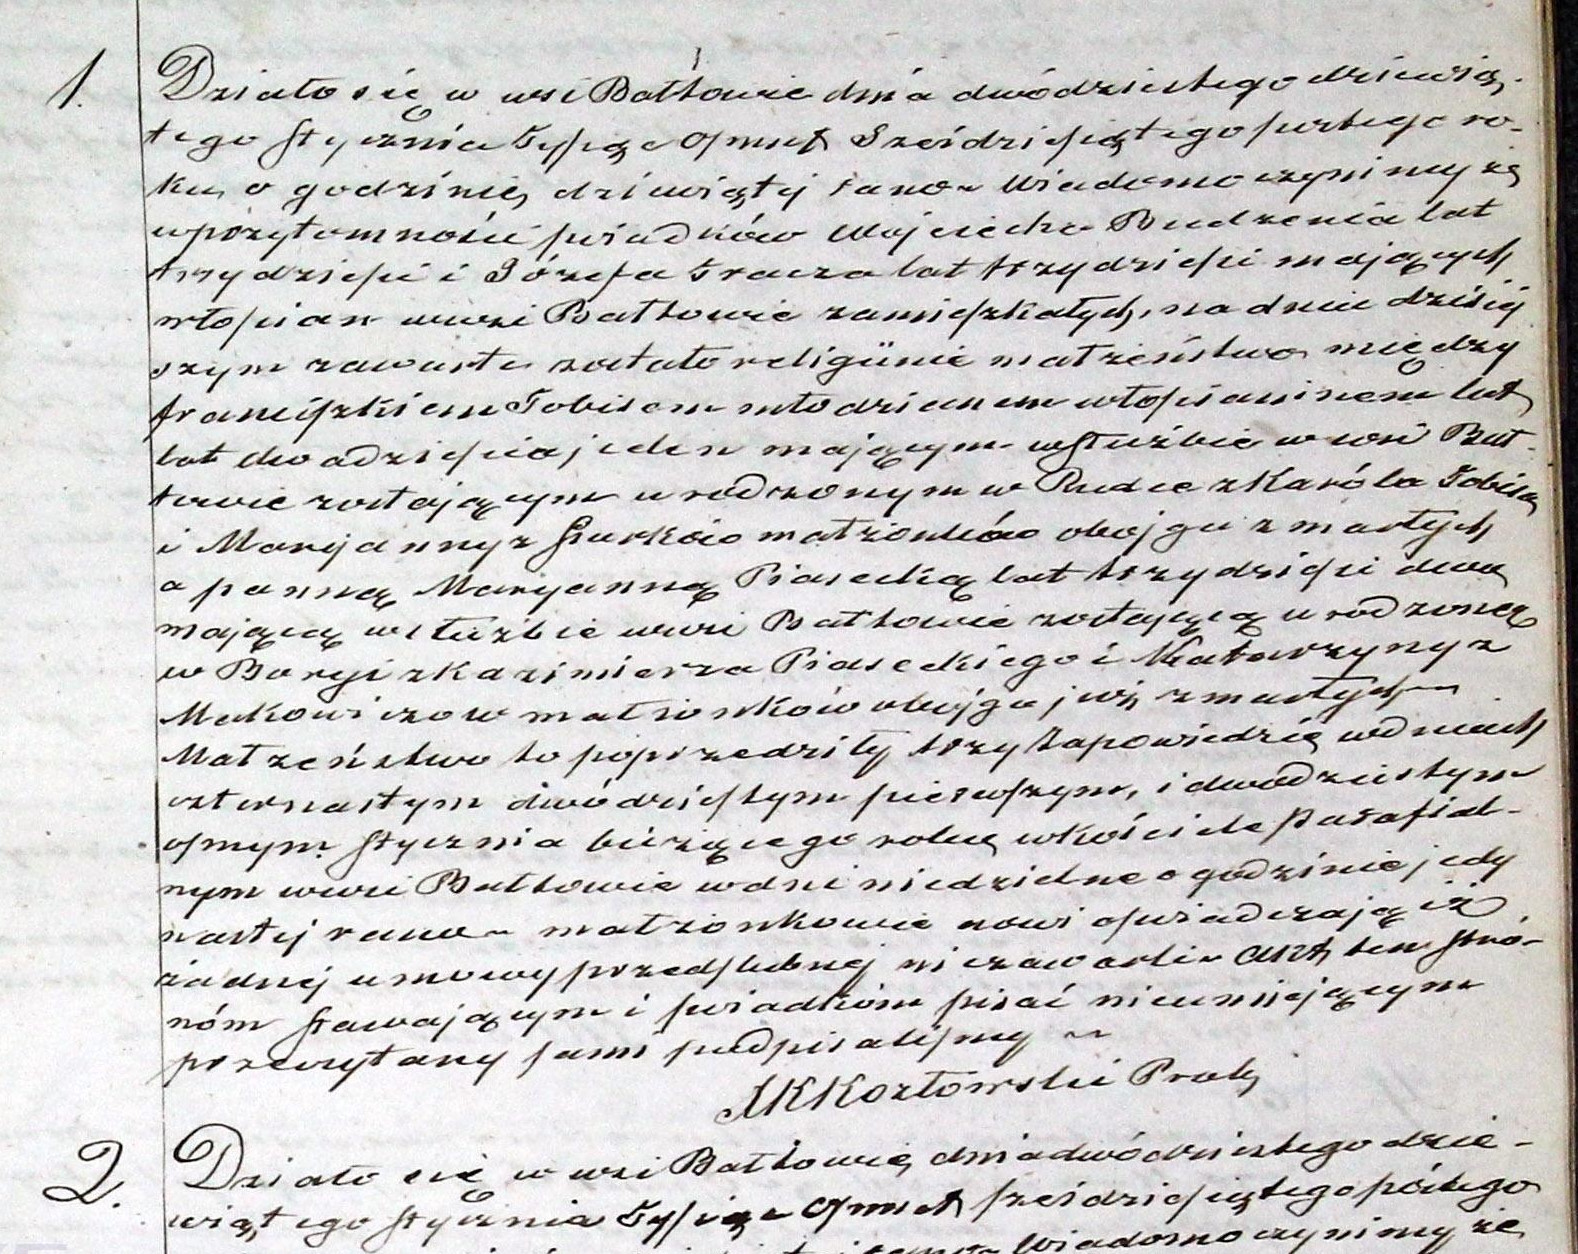 1. Działo się w wsi Bałtowie dnia dwódziestego dziewią-
tego stycznia Tysiąc Osmset Sześdziesiątego ro-
ku, o godzinie dziewiątej rano Wiadomo czynimy że
w przytomności świadków Wojciecha Budzenia lat
trzydzieści i Józefa Tracza lat trzydzieści mających
włościan wwsi Bałtowie zamieszkałych, na dniu dzisiej
szym zawarte zostało religijnie małżeństwo między
Franciszkiem Tobisem młodzianem włościaninem lat
lat dwadzieściajeden mającym w służbie w wsi Bał-
towie zostającym urodzonym w Rudce z Karóla Tobisa
i Maryanny z małżonków obojga zmarłych
a panną Maryanną Piasecką lat trzydzieści dwa
mającą w służbie wwsi Bałtowie zostającą urodzoną
w Boryi z Kazimierza Piaseckiego i Katarzyny z
Makowiczow małżonków obojga już zmarłych
Małżeństwo to poprzedziły trzy Zapowiedzie w dniach
czternastym dwódziestym pierwszym, i dwadziestym
osmym stycznia bieżącego roku w kościele Parafial-
nym wwsi Bałtowie w dni niedzielne o godzinie jedy
nastej rano małżonkowie nowi oświadczają iż
żadnej umowy przedślubnej niezawarli Akt ten stró-
nóm stawającym i świadkóm pisać nieumiejącym
przeczytany sami podpisaliśmy
XKKozłowski Prob
2. Działo się w wsi Bałtowie dnia dwódziestego dzie-
wiątego stycznia Tysiąc Osmset sześdziesiątego piątego
rano Wiadomo czynimy że